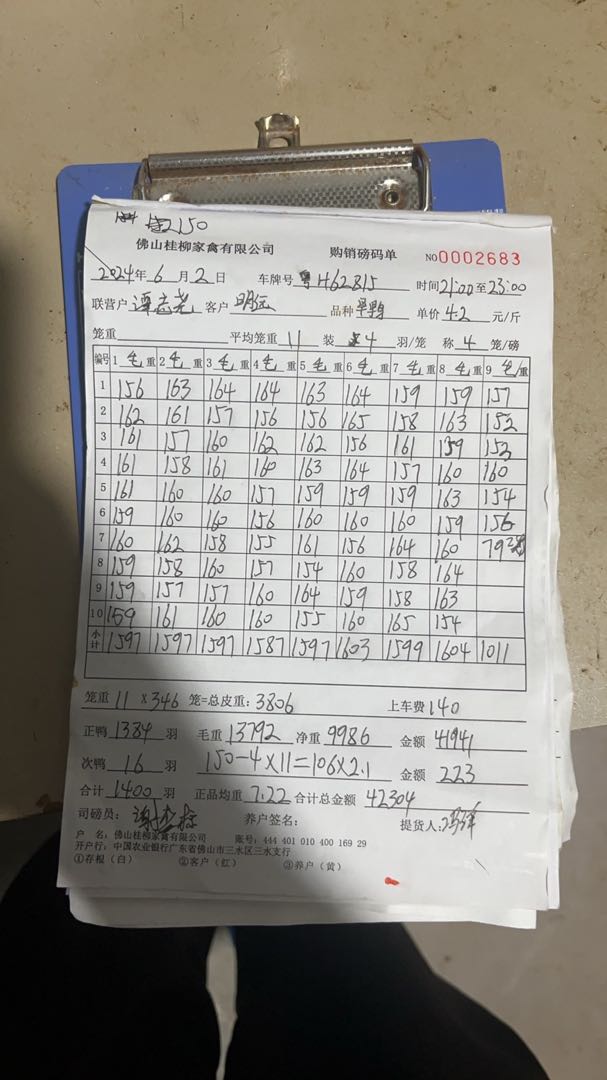 佛山桂柳家禽有限公司 购销磅码单 NO0002683
2024年6月2日 车牌号 粤H62815 时间21:00至23:00
联营户 谭志尧 客户 明伍 品种 单价 4.2 元/斤
笼重 平均笼重 11 装 4 羽/笼 称 4 笼/磅
编号 1 毛重 2 毛重 3 毛重 4 毛重 5 毛重 6 毛重 7 毛重 8 毛重 9 毛重
1 156 163 164 164 163 164 159 159 157
2 162 161 157 156 156 165 158 163 152
3 161 157 160 162 162 156 161 159 152
4 161 158 161 160 163 164 157 160 160
5 161 160 160 157 159 159 159 163 154
6 159 160 160 156 160 160 160 159 156
7 160 162 158 155 161 156 164 160 79
8 159 158 160 157 154 160 158 164
9 159 157 157 160 164 159 158 163
10 159 161 160 160 155 160 165 154
小计 1597 1597 1597 1587 1597 1603 1599 1604 1011
笼重 11 X 346 笼=总皮重: 3806 上车费 140
正鸭 1384 羽 毛重 13792 净重 9986 金额 41941
次鸭 16 羽 150-4X11=106X2.1 金额 223
合计 1400 羽 正品均重 7.22 合计总金额 42304
司磅员: 养户签名: 提货人:
户 名: 佛山桂柳家禽有限公司 账号: 444 401 010 400 169 29
开户行: 中国农业银行广东省佛山市三水区三水支行
①存根(白) ②客户(红) ③养户(黄)